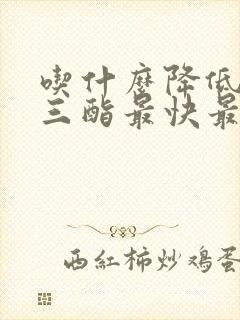 喫什麽降低
三酯最快最
西紅柿炒鸡蛋